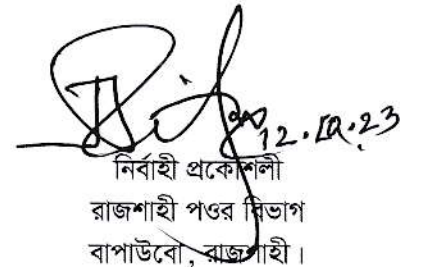 12.10.23
নির্বাহী প্রকৌশলী
রাজশাহী পওর বিভাগ
বাপাউবো, রাজশাহী।